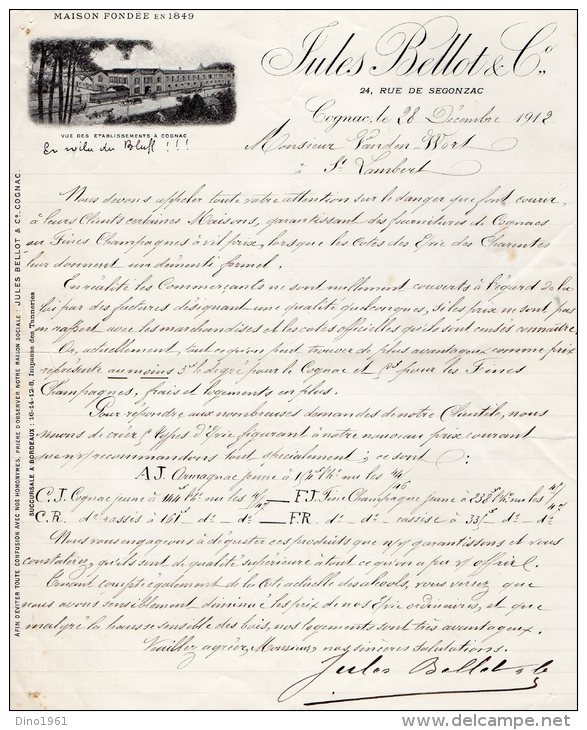 MAISON FONDÉE EN 1849
Jules Bellot & Cº
24, RUE DE SEGONZAC
VUE DES ETABLISSEMENTS A COGNAC
En voilà du Bluff !!!
Cognac, le 28 Décembre 1912
Monsieur Vanden-Wort
à St Lambert
Nous devons appeler toute votre attention sur le danger que font courir
à leurs Clients certaines Maisons, garantissant des fournitures de Cognacs
ou Fines Champagnes à vil prix, lorsque les cotes des Eaux de Vie des Charentes
leur donnent un démenti formel.
En réalité les Commerçants ne sont nullement couverts à l'égard de la
loi par des factures désignant une qualité quelconque, si les prix ne sont pas
en rapport avec les marchandises et les cotes officielles qu'ils sont censés connaître.
Or, actuellement, tout ce qu'on peut trouver de plus avantageux comme prix
représente au moins 3f le degré pour le Cognac et pour les Fines
Champagnes, frais et logements en plus.
Pour répondre aux nombreuses demandes de notre Clientèle, nous
venons de créer types d'Evie figurant à notre nouveau prix courant
que n/ v/ recommandons tout spécialement ; ce sont :
A.J. Armagnac jeune à nu les
C.J. Cognac jeune à 144f nu les — F.J. Fine Champagne jeune à nu les
C.R. dº rassis à 151f dº — dº — F.R. dº — dº — rassise à dº — dº
Nous vous engageons à déguster ces produits que n/ v/ garantissons et vous
constaterez, qu'ils sont de qualité supérieure à tout ce qu'on a pu v/ offrir.
Tenant compte également de la Cote actuelle des alcools, vous verrez que
nous avons sensiblement diminué les prix de nos Evie ordinaires, et que
malgré la hausse sensible des bois, nos logements sont très avantageux.
Veuillez agréer, Monsieur, nos sincères salutations.
Jules Bellot & Co
AFIN D'ÉVITER TOUTE CONFUSION AVEC NOS HOMONYMES, PRIÈRE D'OBSERVER NOTRE RAISON SOCIALE : JULES BELLOT & Cº, COGNAC.
SUCCURSALE A BORDEAUX : 10-14-12-8, Impasse des Tanneries
Dino1961
delcampe.net